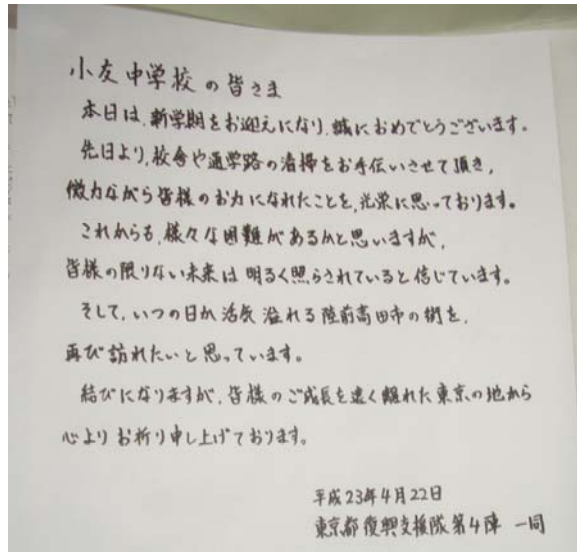 小友中学校の皆さま
本日は、新学期をお迎えになり、誠におめでとうございます。
先日より、校舎や通学路の清掃をお手伝いさせて頂き、
微力ながら皆様のお力になれたことを、光栄に思っております。
これからも、様々な困難があるかと思いますが、
皆様の限りない未来は明るく照らされていると信じています。
そして、いつの日か活気溢れる陸前高田市の街を、
再び訪れたいと思っています。
結びになりますが、皆様のご成長を遠く離れた東京の地から
心よりお祈り申し上げております。
平成23年4月22日
東京都復興支援隊第4陣 一同